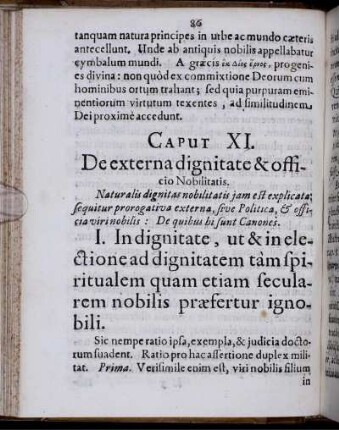 86
tanquam natura principes in urbe ac mundo cæteris
antecellunt. Unde ab antiquis nobilis appellabatur
cymbalum mundi. A græcis ἐκ Διὸς progeni-
es divina: non quòd ex commixtione Deorum cum
hominibus ortum trahant; sed quia purpuram emi-
nentiorum virtutum texentes, ad similitudinem
Dei proximè accedunt.
CAPUT XI.
De externa dignitate & offi-
cio Nobilitatis.
Naturalis dignitas nobilitatis jam est explicata;
sequitur prorogativa externa, sive Politica, & offi-
cia viri nobilis: De quibus hi sunt Canones.
I. In dignitate, ut & in ele-
ctione ad dignitatem tàm spi-
ritualem quam etiam secula-
rem nobilis præfertur igno-
bili.
Sic nempe ratio ipsa, exempla, & judicia docto-
rum suadent. Ratio pro hac assertione duplex mili-
tat. Prima. Verisimile enim est, viri nobilis filium
in